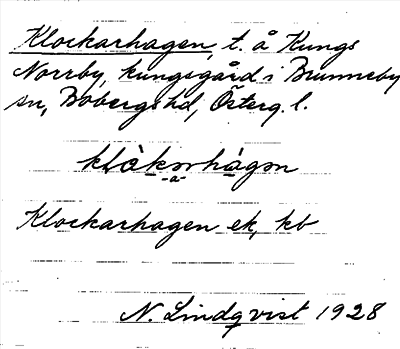 Klockarhagen, t. å Kungs
Norrby, kungsgård i Brunneby
sn, Bobergs hd, Österg. l.
klòkərhàgən
a
Klockarhagen ek, kb
N. Lindqvist 1928